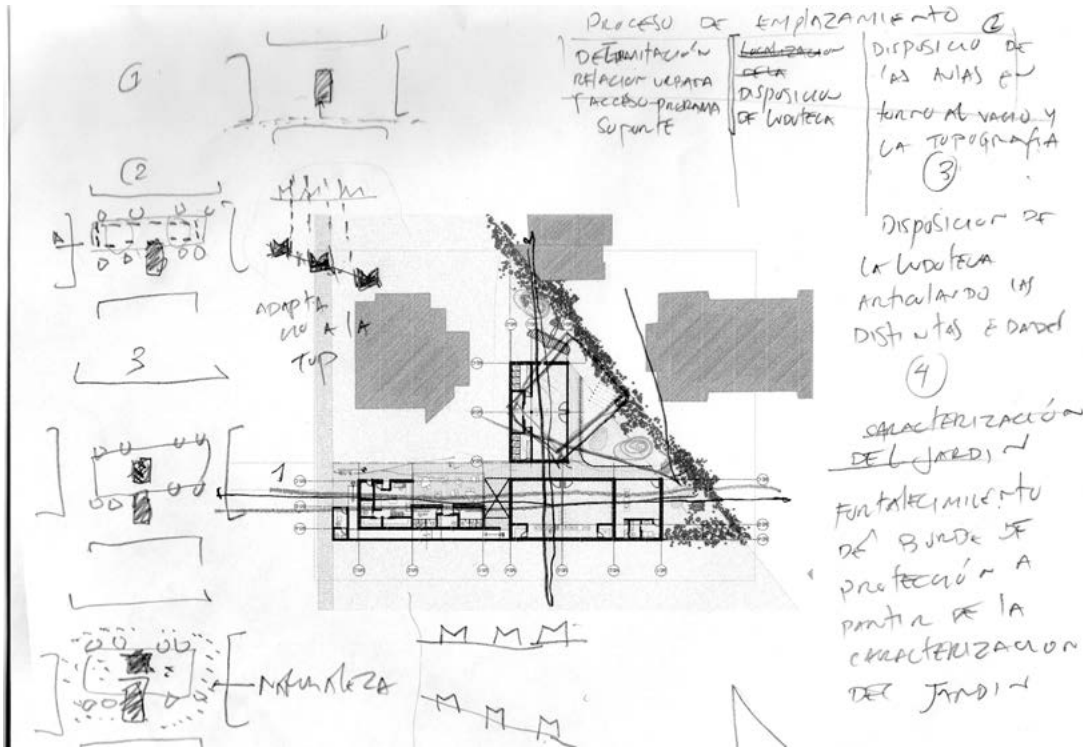 PROCESO DE EMPLAZAMIENTO 2
DELIMITACIÓN
RELACION URBANA
Y ACCESO-PROGRAMA
SOPORTE
LOCALIZACION
DE LA
DISPOSICION
DE LUDOTECA
DISPOSICIO DE
LAS AULAS EN
TORNO AL VACIO Y
LA TOPOGRAFIA
3
DISPOSICION DE
LA LUDOTECA
ARTICULANDO LAS
DISTINTAS EDADES
4
CARACTERIZACIÓN
DEL JARDIN
FORTALECIMIENTO
DE BORDE DE
PROTECCIÓN A
PARTIR DE LA
CARACTERIZACION
DEL JARDIN
1
2
ADAPTA
A LA
TOP
3
1
NATURALEZA